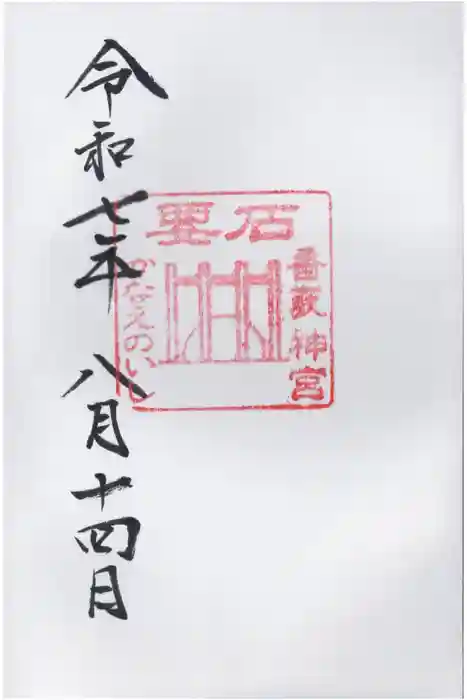 香取神宮
要石
かなめのいし
令和七年 八月十四日